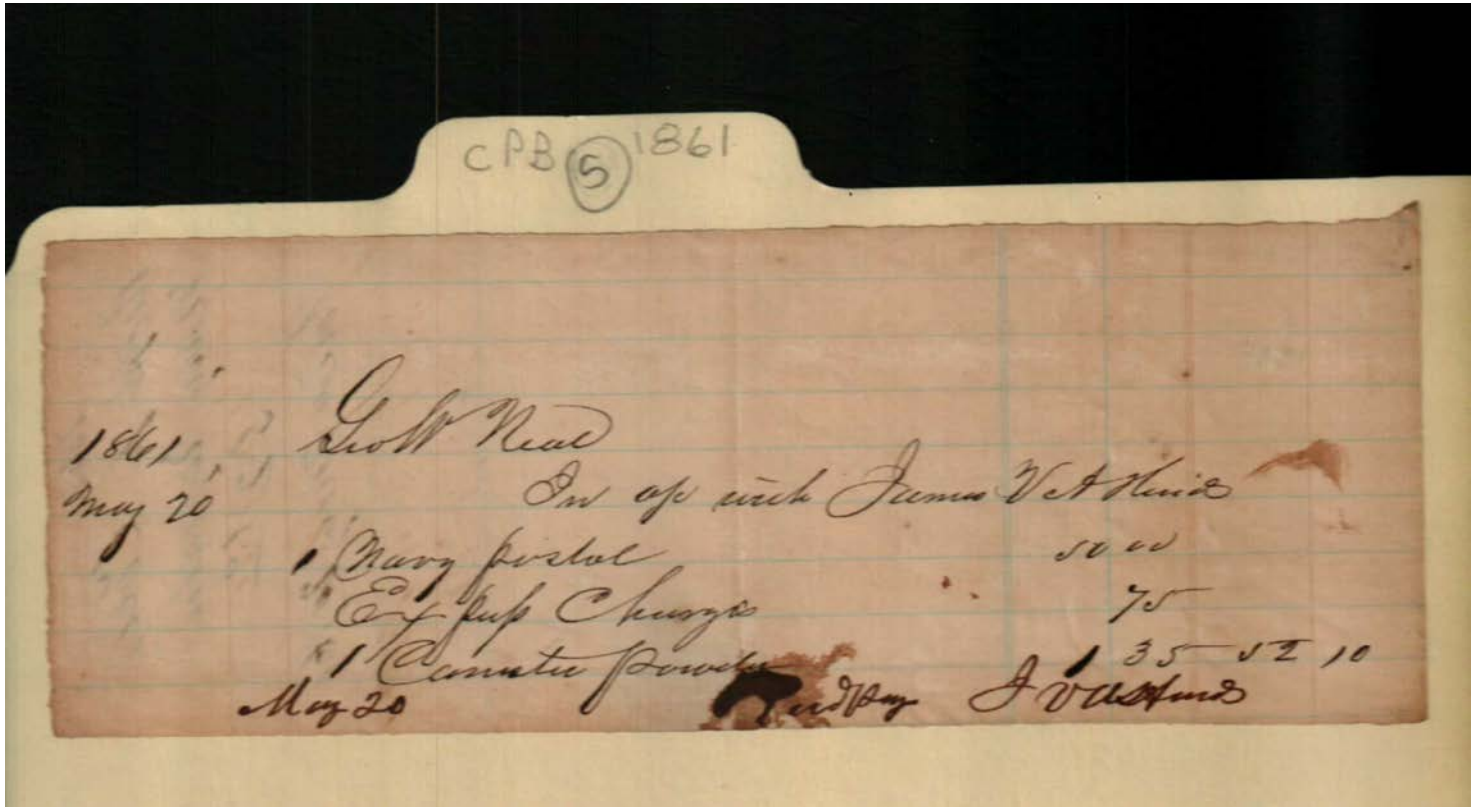 CPB 5 1861
1861 Geo W Neal
May 20 In ac with James V A Hinds
1 Navy pistol 50 00
Express Charges 75
1 Canister Powder 1 35 52 10
May 20 Recd Pay J V A Hinds